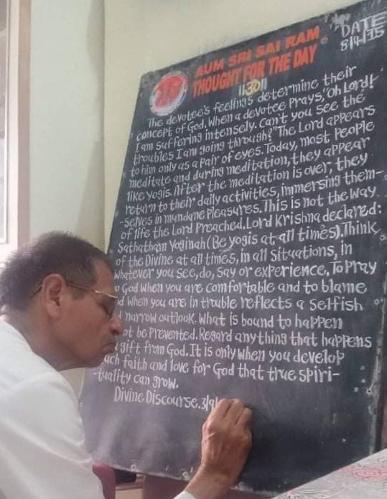 AUM SRI SAI RAM
THOUGHT FOR THE DAY
DATE
8/4/75
11301
The devotee's feelings determine their
concept of God. When a devotee Prays, 'Oh Lord!
I am suffering intensely. Can't you see the
troubles I am going through!' The Lord appears
to him only as a Pair of eyes. Today, most People
meditate and during meditation, they appear
like yogis. After the meditation is over, they
return to their daily activities, immersing them-
-selves in mundane Pleasures. This is not the way
of life the Lord Preached. Lord Krishna declared:
Sathatham Yoginah (Be yogis at all times). Think
of the Divine at all times, in all Situations, in
whatever you see, do, say or experience, To Pray
to God when you are comfortable and to blame
when you are in trouble reflects a selfish
narrow outlook. What is bound to happen
be Prevented. Regard anything that happens
gift from God. It is only when you develop
such faith and love for God that true spiri-
-tuality can grow.
Divine Discourse.